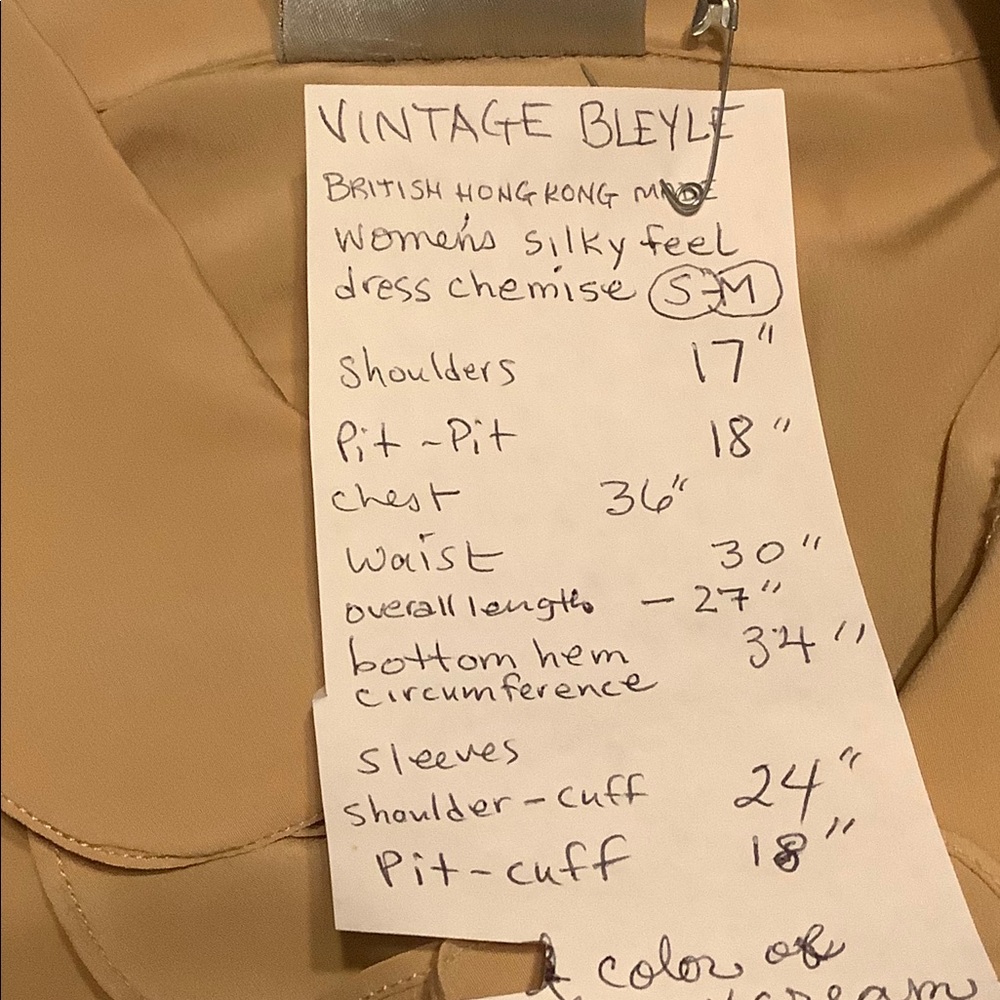 VINTAGE BLEYLE
BRITISH HONG KONG MADE
Women's silky feel
dress chemise S-M
Shoulders 17"
Pit-Pit 18"
chest 36"
waist 30"
overall length - 27"
bottom hem 34"
circumference
sleeves
shoulder-cuff 24"
Pit-cuff 18"
color of
cream